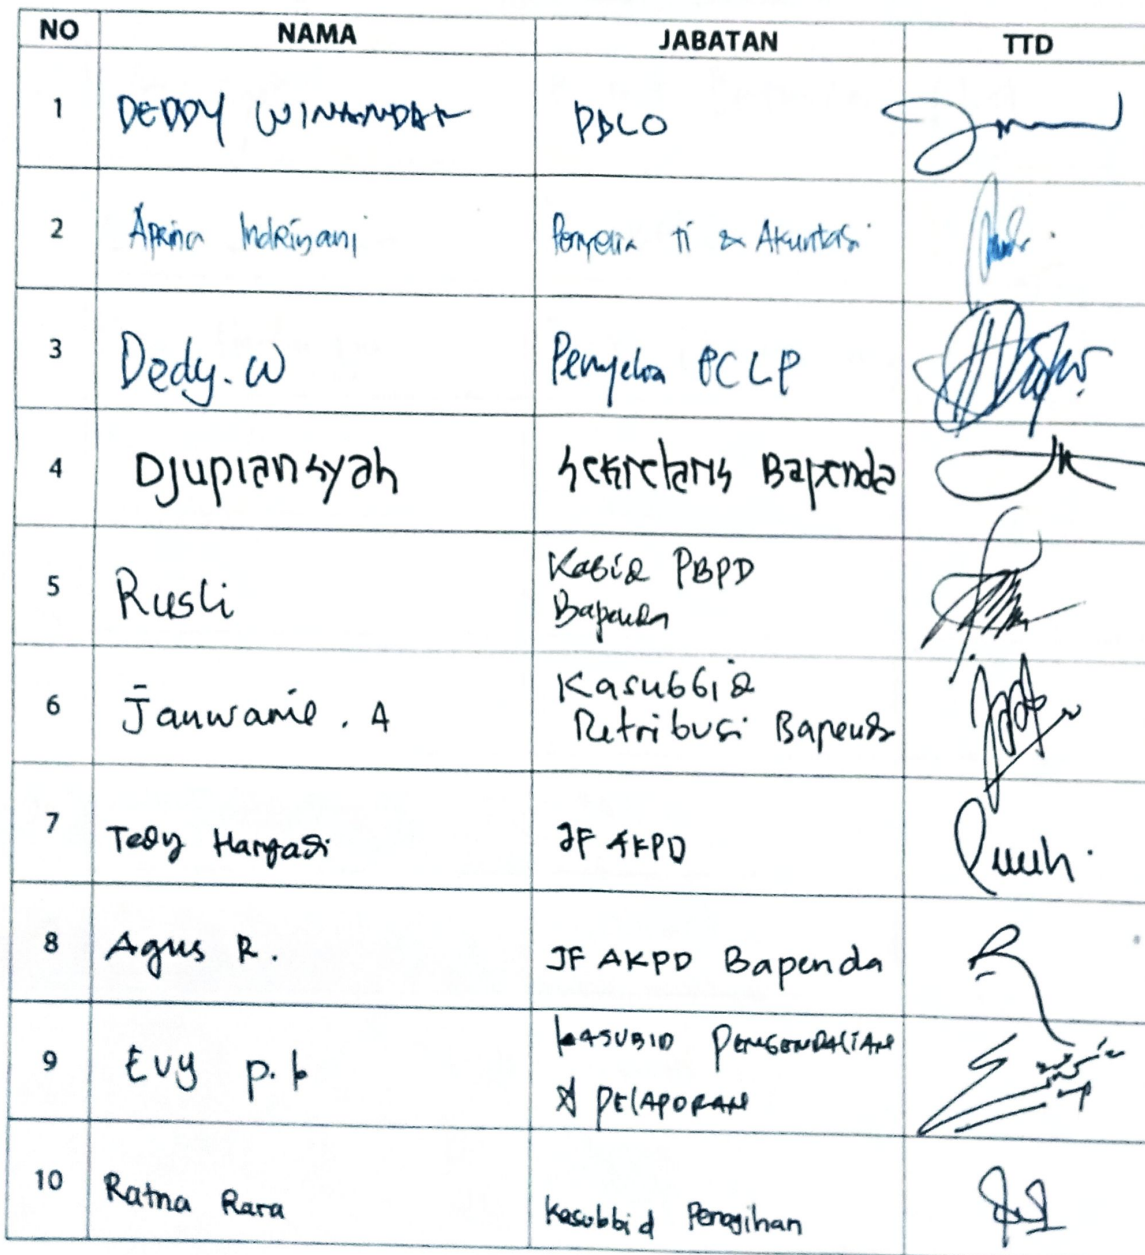 NO NAMA JABATAN TTD
1 DEDDY WINANDAR PBLO
2 Aprina Indriyani Penyelia TI & Akuntasi
3 Dedy. W Penyelia PCLP
4 Djupiansyah Sekretaris Bapenda
5 Rusli Kabid PBPD
Bapenda
6 Janwarie . A Kasubbid
Retribusi Bapenda
7 Tedy Haryadi JF AKPD
8 Agus R. JF AKPD Bapenda
9 Evy p. k KASUBID PENGENDALIAN
& PELAPORAN
10 Ratna Rara Kasubbid Penagihan